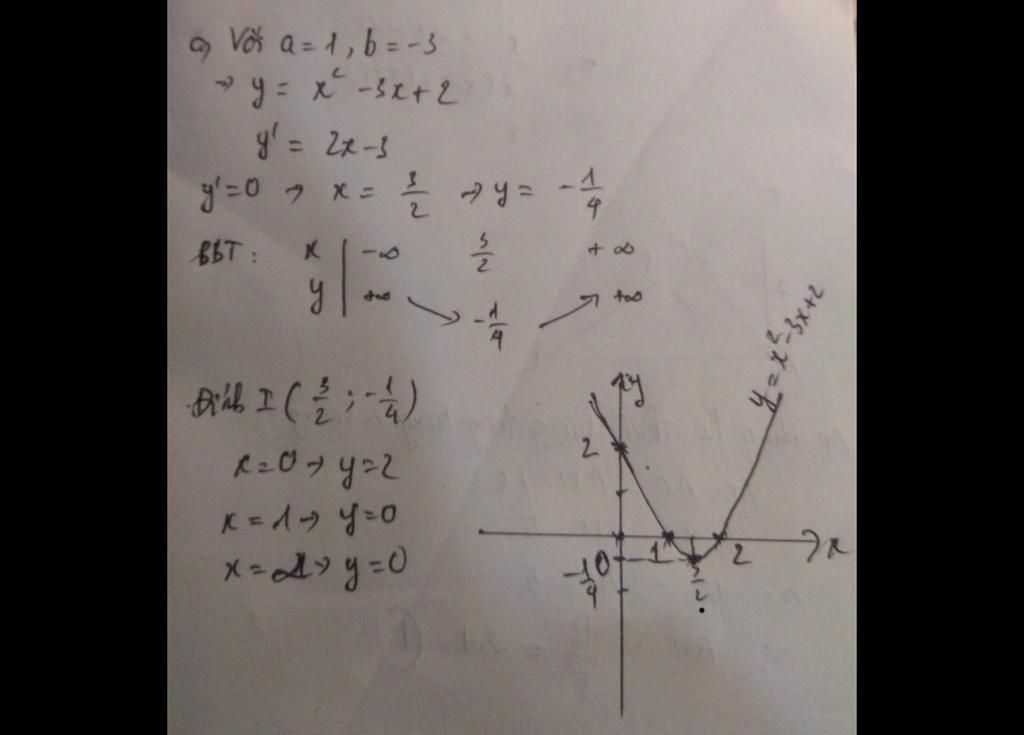 a) Với a = 1, b = -3
→ y = x² - 3x + 2
y' = 2x - 3
y' = 0 → x = 3/2 → y = -1/4
BBT: x | -∞ 3/2 +∞
y | +∞ ↘ -1/4 ↗ +∞
Đỉnh I (3/2 ; -1/4)
x = 0 → y = 2
x = 1 → y = 0
x = 2 → y = 0
y
y = x² - 3x + 2
2
0 1 2 x
-1/4 3/2